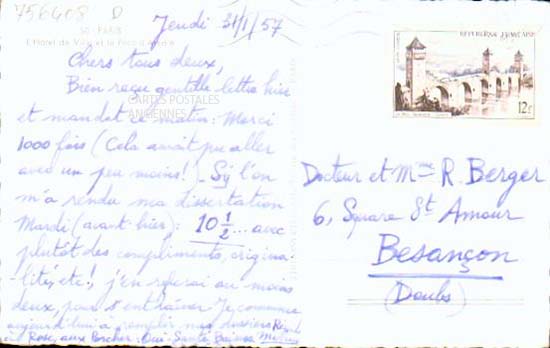 756408 D
50 - PARIS
L'Hôtel de Ville et
Jeudi 31/1/57
Chers tous deux,
Bien reçu gentille lettre hier
et mandat ce matin : Merci
1000 fois (Cela aurait pu aller
avec un peu moins!) - Sj l'on
m'a rendu ma dissertation
Mardi (avant hier) : 10 1/2 ... avec
plutôt des compliments, origina-
lité, etc!, j'en referai au moins
deux, pour s'entraîner. Je commence
aujourd'hui à remplir mes dossiers
Rose, aux Porcher : Oui : Santé
CARTES POSTALES
ANCIENNES
REPUBLIQUE FRANÇAISE
12f
Docteur et Mme R. Berger
6, Square St Amour
Besançon
(Doubs)